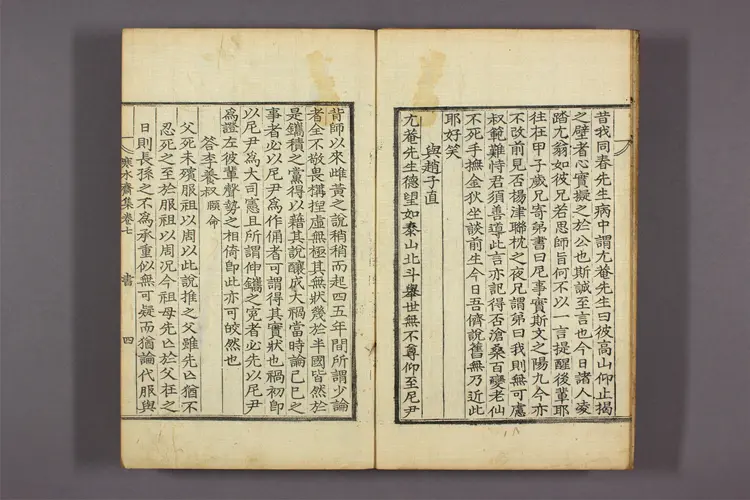 昔我同春先生病中謂尤菴先生曰彼高山仰止揭
之壁者心實擬之於公也斯誠至言也今日諸人凌
踏尤翁如彼兄若思師旨何不以一言提醒後輩耶
往在甲子歲兄寄弟書曰尼事實斯文之陽九今亦
不改前見否楊津聯枕之夜兄謂弟曰我則無可處
叔範難恃君須善導此言亦記得否滄桑百變老仙
不死手撫金狄坐談前生今日吾儕說舊無乃近此
耶好笑
與趙子直
尤菴先生德望如泰山北斗擧世無不尊仰至尼尹
背師以來雌黃之說稍稍而起四五年間所謂少論
者全不敬畏搆捏虛無極其無狀幾於半國皆然於
是鑴積之黨得以藉其說釀成大禍當時論己巳之
事者必以尼尹爲作俑者可謂得其實狀也禍初卽
以尼尹爲大司憲且所謂伸鑴之寃者必先以尼尹
爲證左彼輩聲勢之相倚卽此亦可皎然也
答李養叔頤命
父死未殯服祖以周以此說推之父雖先亡猶不
忍死之至於服祖以周况今祖母先亡於父在之
日則長孫之不爲承重似無可疑而猶論代服與
寒水齋集卷七 書 四